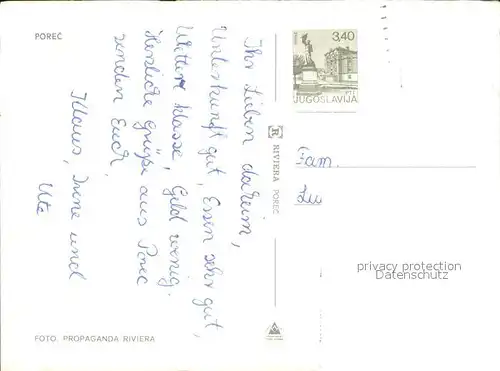 POREČ
Ihr Lieben daheim,
Unterkunft gut, Essen sehr gut,
Wetter klasse, Geld wenig.
Herzliche Grüße aus Porec
senden Euch,
Klaus, Irene und
Ute
FOTO. PROPAGANDA RIVIERA
R
RIVIERA POREČ
3,40
JUGOSLAVIJA
Fam.
privacy protection
Datenschutz